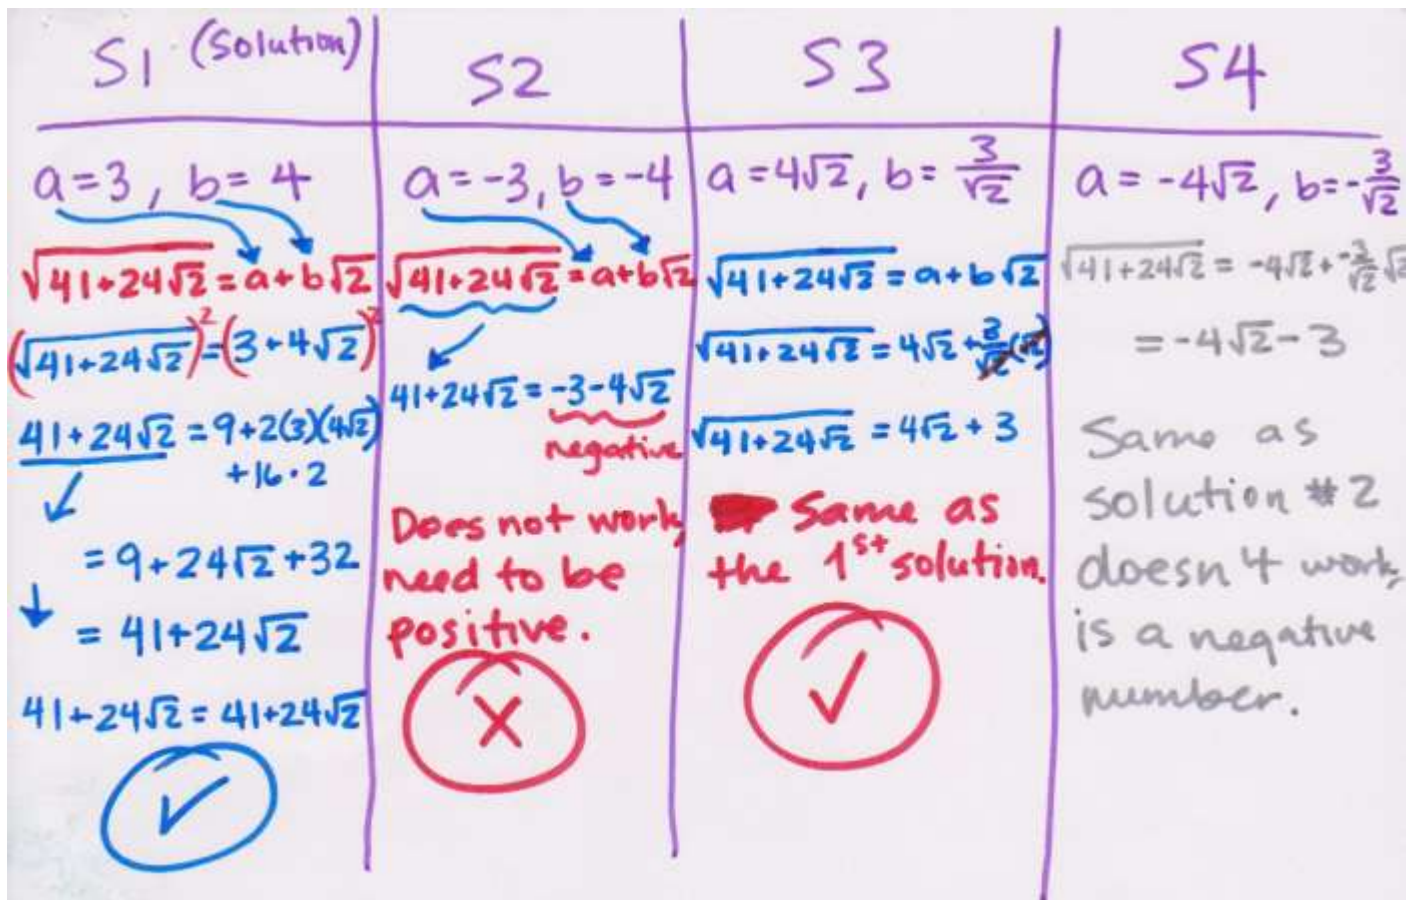 S1 (Solution)
a=3, b=4
√(41+24√2) = a+b√2
(√(41+24√2))² = (3+4√2)²
41+24√2 = 9+2(3)(4√2)
+16·2
= 9+24√2+32
= 41+24√2
41+24√2 = 41+24√2
S2
a=-3, b=-4
√(41+24√2) = a+b√2
41+24√2 = -3-4√2
negative
Does not work,
need to be
positive.
S3
a=4√2, b=3/√2
√(41+24√2) = a+b√2
√(41+24√2) = 4√2+3/√2(√2)
√(41+24√2) = 4√2+3
Same as
the 1st solution.
S4
a=-4√2, b=-3/√2
√(41+24√2) = -4√2+-3/√2 √2
= -4√2-3
Same as
solution #2
doesn't work,
is a negative
number.